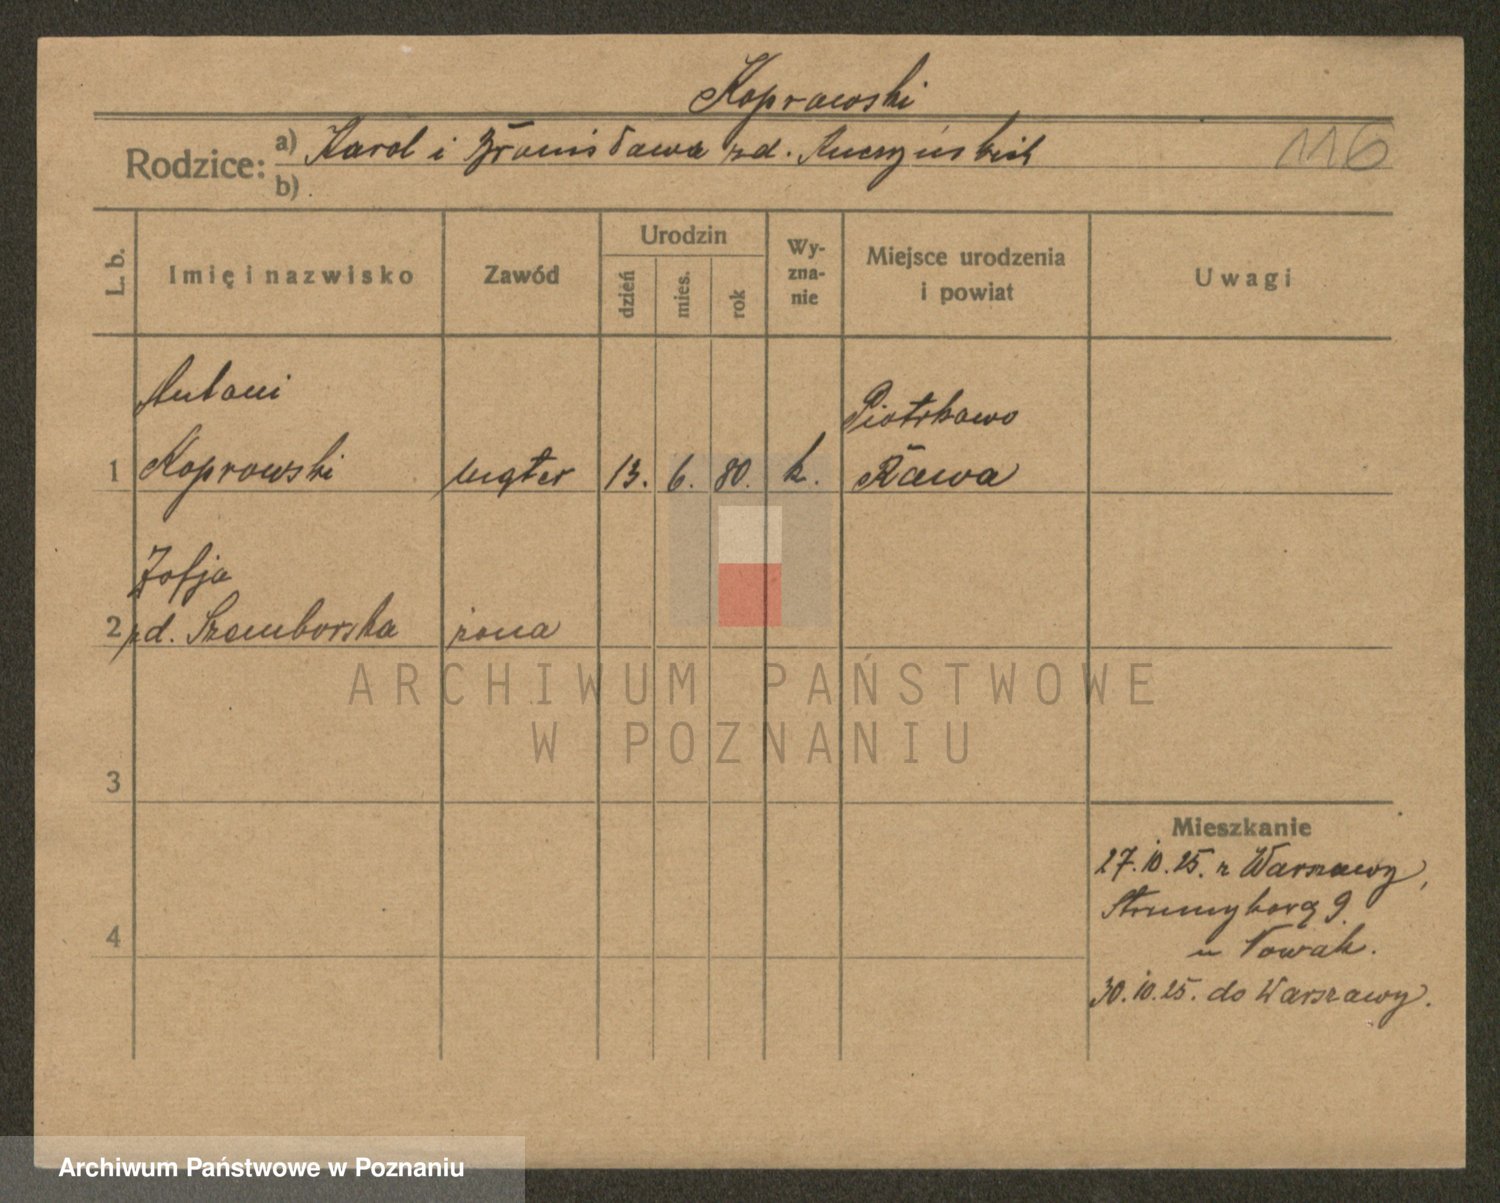 Koprowski
Rodzice: a) Karol i Bronisława zd.
b)
116
L. b.
Imię i nazwisko
Zawód
Urodzin
dzień
mies.
rok
Wy-
zna-
nie
Miejsce urodzenia
i powiat
Uwagi
Antoni
Piotrkowo
1 Koprowski 13. 6. 80. k. Rawa
Zofja
2 zd. Szamborska żona
3
4
Mieszkanie
27.10.25. z Warszawy,
9
u Nowak.
30.10.25. do Warszawy.
ARCHIWUM PAŃSTWOWE
W POZNANIU
Archiwum Państwowe w Poznaniu